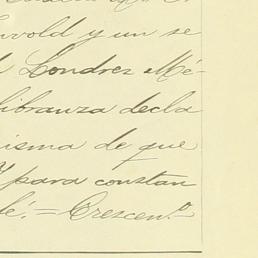 nvold y un se
Londres Mé-
libranza decla
isma de que
Y para constan
fé. = Crescen.º